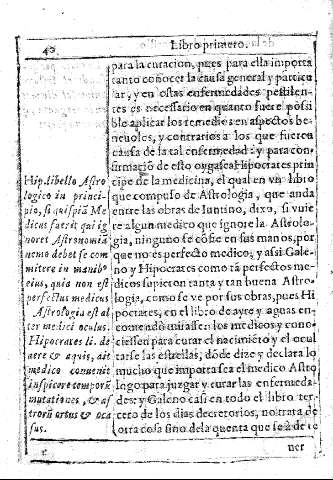 40 Libro primero.
para la curacion, pues para ella importa
tanto conocer la causa general y particu
lar, y en estas enfermedades pestilen-
tes es necessario en quanto fuere possi
ble aplicar los remedios en aspectos be-
neuolos, y contrarios a los que fueren
causa de la tal enfermedad: y para con-
firmacio de esto oygase a Hipocrates prin
cipe de la medicina, el qual en vn libro
que compuso de Astrologia, que anda
entre las obras de Iuntino, dixo, si vuie
re algun medico que ignore la Astrolo-
gia, ninguno se cõfie en sus manos, por
que no es perfecto medico, y assi Gale-
no y Hipocrates como tã perfectos me-
dicos supieron tanta y tan buena Astro-
logia, como se ve por sus obras, pues Hi
pocrates, en el libro de ayre y aguas en-
comendo
a los medicos y cono-
ciessen para curar el nacimiẽto y el ocul
tarse las estrellas, dõde dize y declara lo
mucho que importa sea el medico Astro
logo para juzgar y curar las enfermeda-
des: y Galeno casi en todo el libro ter-
cero de los dias decretorios, no trata de
otra cosa sino de la quenta que se à de te
ner
Hip. libello Astro
logico in princi-
pio, si quispiã Me
dicus fuerit qui ig
noret Astronomiã
nemo debet se com
mitere in manib9
eius, quia non est
perfectus medicus
Astrologia est al
ter medici oculus.
Hipocrates li. de
aere & aquis, ait
medico conuenit
inspicere temporũ
mutationes, & as
trorũ ortus & oca
sus.